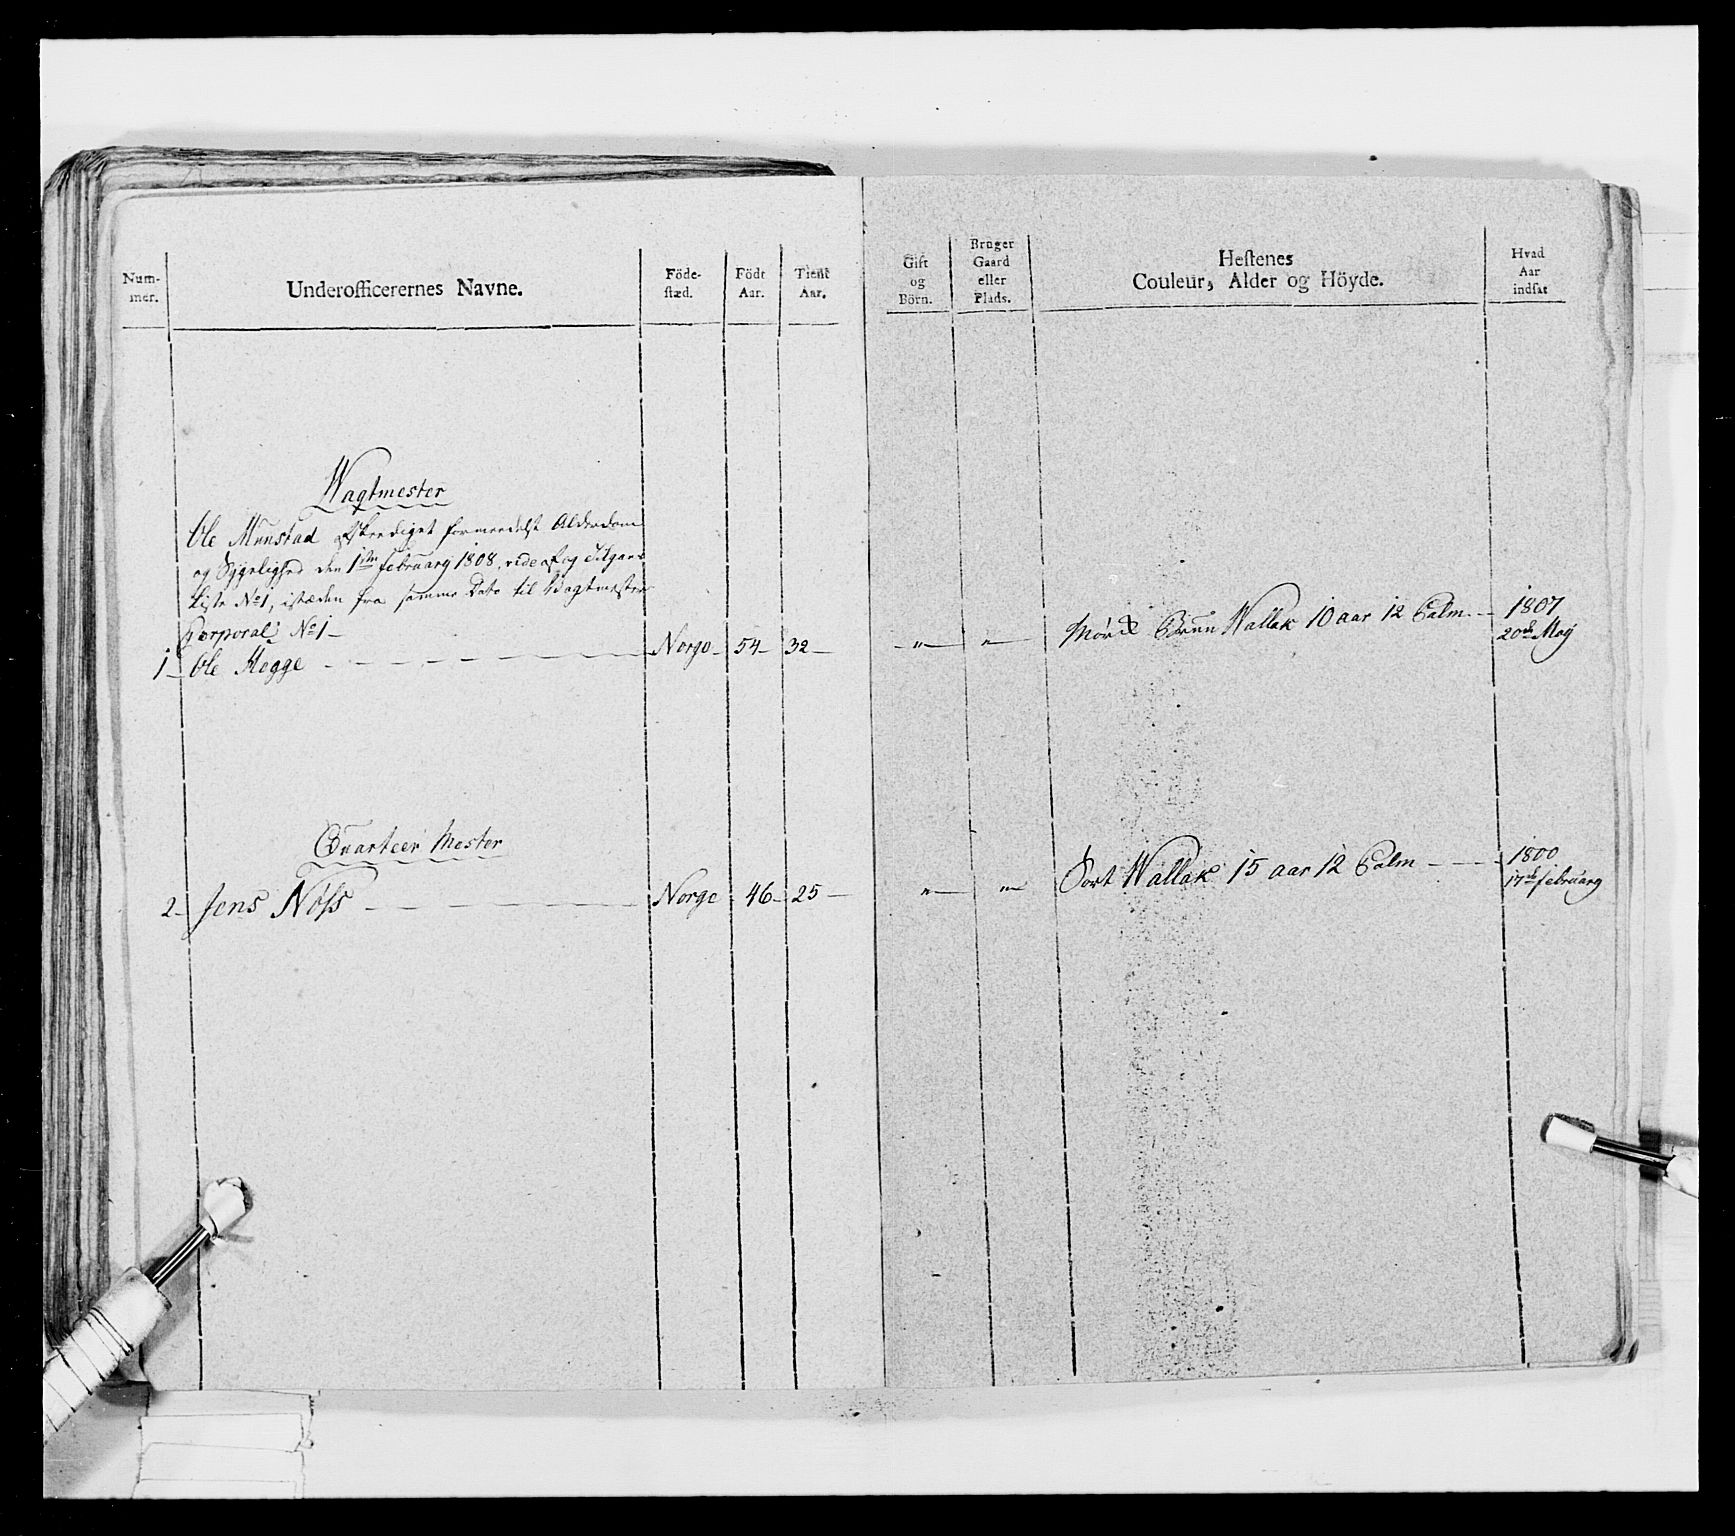 Num-
mer.
Underofficerernes Navne.
Föde-
stæd.
Födt
Aar.
Tient
Aar.
Gift
og
Börn.
Bruger
Gaard
eller
Plads.
Hestenes
Couleur, Alder og Höyde.
Hvad
Aar
indsat
Wagtmester
Ole Munstad afskediget formeedelst Alderdom
og Sygelighed den 1ste februarg 1808, vide Afog Tilgans
Liste No 1, istæden fra samme Dato til Wagtmester
Corporal No 1 -
1 - Ole Hegge - Norge - 54 - 32 - " - " - Mörk Bruun Wallak 10 aar 12 Palm - 1807
20de May
Quarteer Mester
2 - Jens Nöss - Norge 46 - 25 - " - " - Sort Wallak 15 aar 12 Palm - 1800
17de februarg